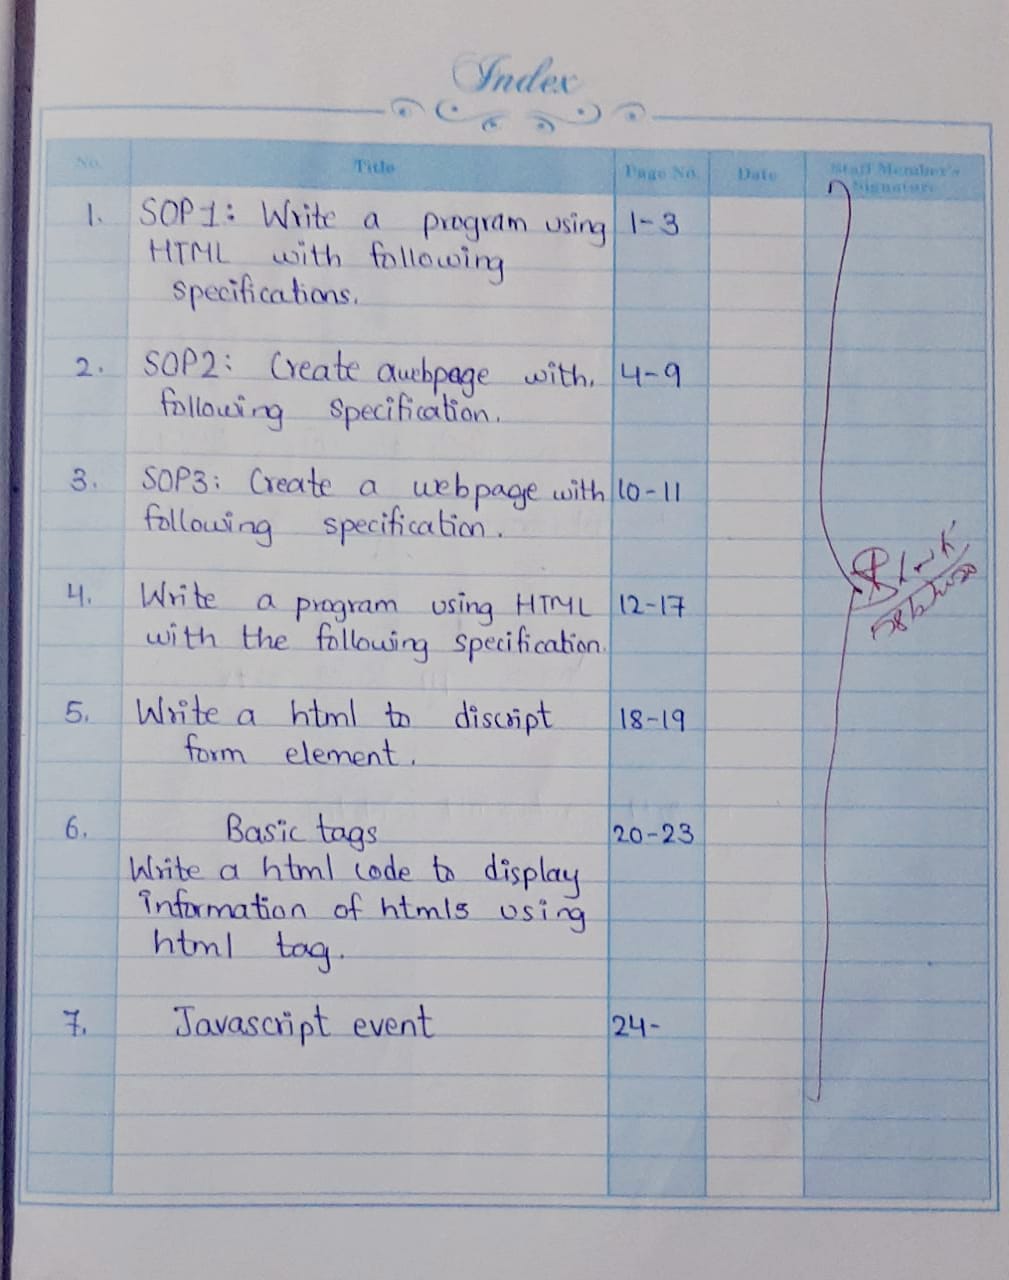 Index
No. Title Page No. Date Staff Member's
Signature
1. SOP1: Write a program using 1-3
HTML with following
specifications.
2. SOP2: Create a webpage with. 4-9
following specification.
3. SOP3: Create a webpage with 10-11
following specification.
4. Write a program using HTML 12-17
with the following specification.
5. Write a html to discript 18-19
form element.
6. Basic tags 20-23
Write a html code to display
information of html5 using
html tag.
7. Javascript event 24-